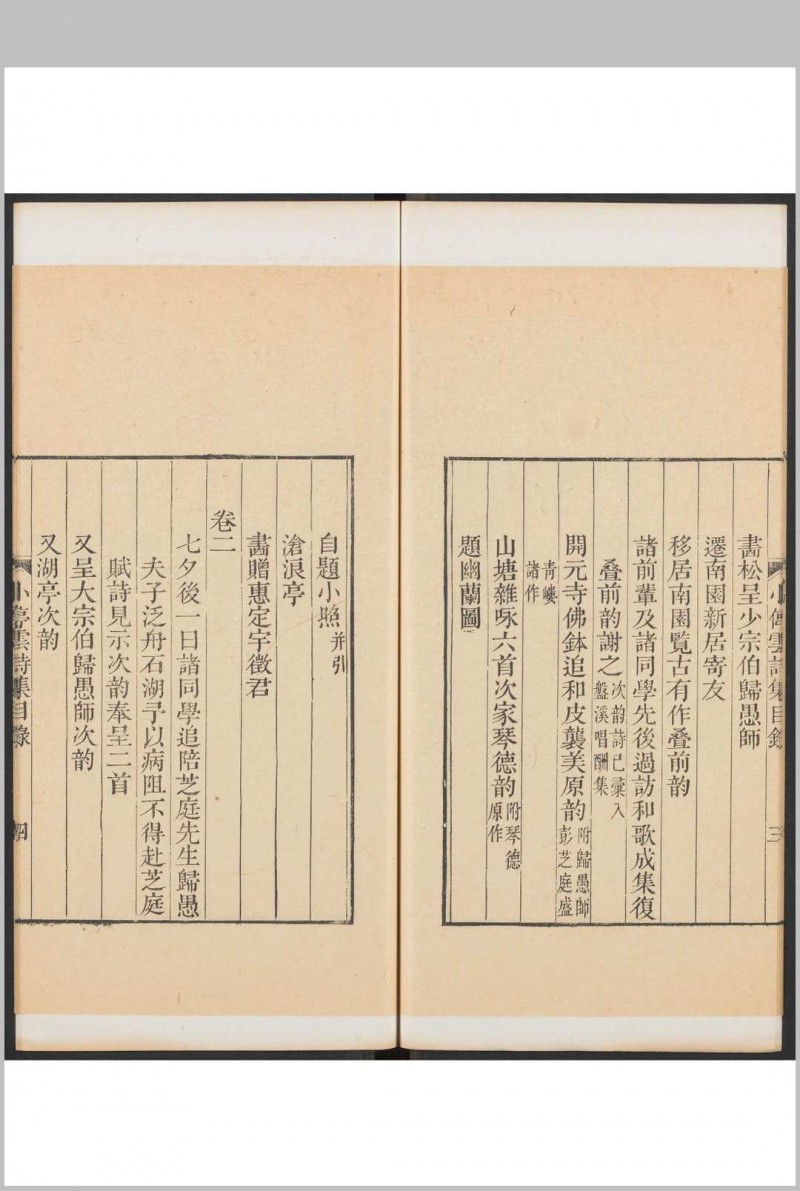 小停雲詩集目錄
三
畵松呈少宗伯歸愚師
遷南園新居寄友
移居南園覧古有作叠前韵
諸前輩及諸同學先後過訪和歌成集復
叠前韵謝之次韵詩已彚入
盤溪唱酬集
開元寺佛鉢追和皮襲美原韵附歸愚師
彭芝庭盛
青嶁
諸作
山塘雜咏六首次家琴德韵附琴德
原作
題幽蘭圖
自題小照并引
滄浪亭
畵贈惠定宇徵君
卷二
七夕後一日諸同學追陪芝庭先生歸愚
夫子泛舟石湖予以病阻不得赴芝庭
賦詩見示次韵奉呈二首
又呈大宗伯歸愚師次韵
又湖亭次韵
小停雲詩集目錄
四